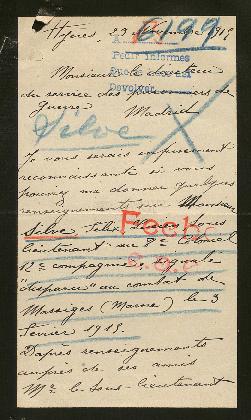 Hyères 23 Novembre 1915
6199
Pedir informes
Devolver
Monsieur le directeur
du service des prisonniers de
guerre
Madrid
Silve
Je vous serais infiniment
reconnaissante si vous
pouviez me donner quelques
renseignements sur Monsieur
Silve, sous
lieutenant au 8e Colonial
12e compagnie, signalé
"disparu" au combat de
Massiges (Marne) le 3
février 1915.
Fecha
D'après renseignements
auprès de ses amis
Mr le sous-lieutenant